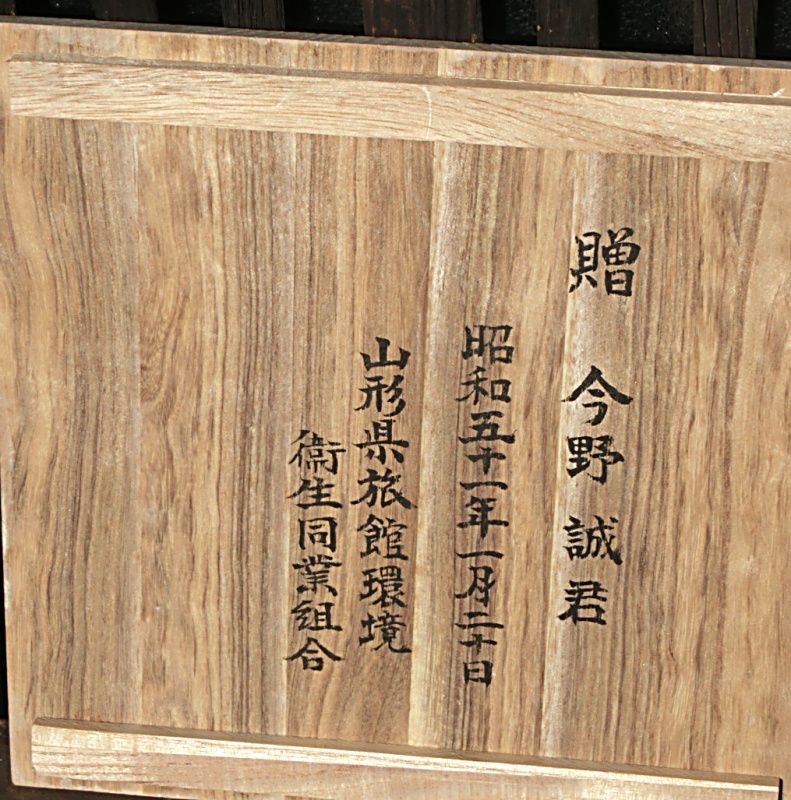 贈 今野誠君
昭和五十一年一月二十日
山形県旅館環境
衛生同業組合